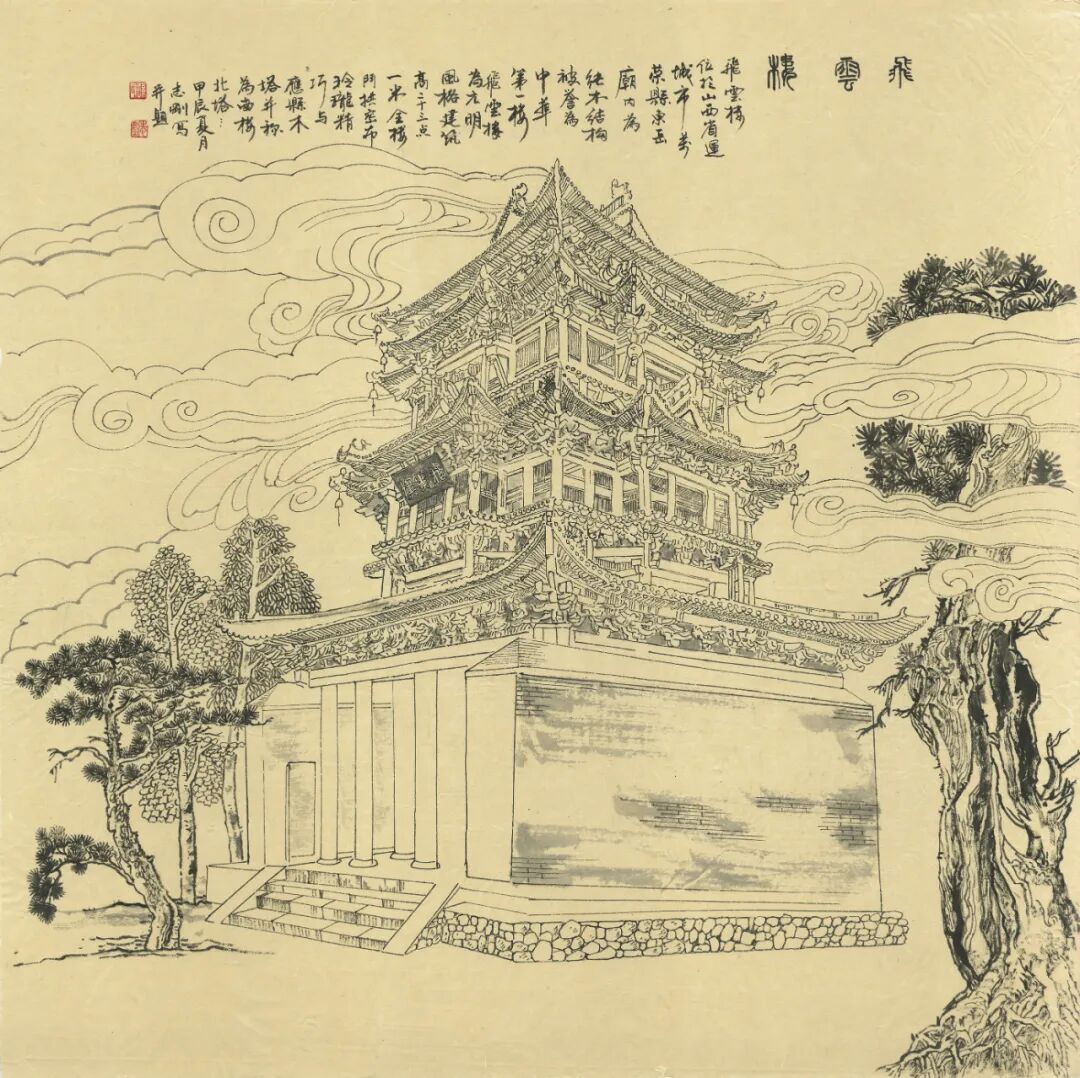 飛雲樓
飛雲楼
位於山西省運
城市萬
榮縣東岳
廟内為
純木结構
被誉為
中華
第一楼
飛雲楼
為元明
風格建筑
高二十三点
一米全楼
鬥拱密布
玲瓏精
巧与
應縣木
塔并称
為南楼
北塔…
甲辰夏月
志剛寫
并題